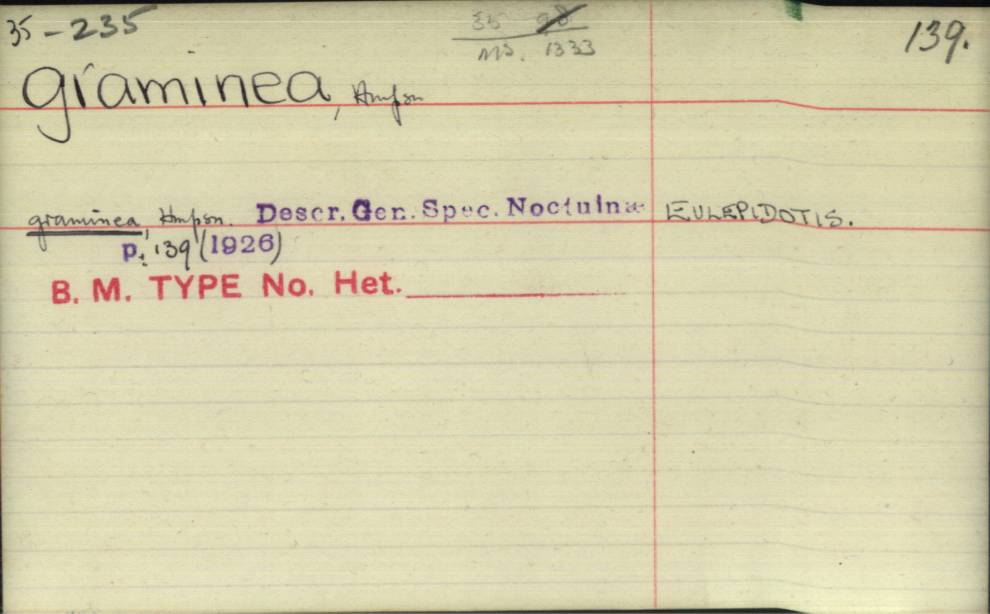 35-235
35
MS. 1333
139.
graminea, Hmpsn
graminea, Hmpsn. Descr. Gen. Spec. Noctuinæ EULEPIDOTIS.
p. 139 (1926)
B. M. TYPE No. Het.